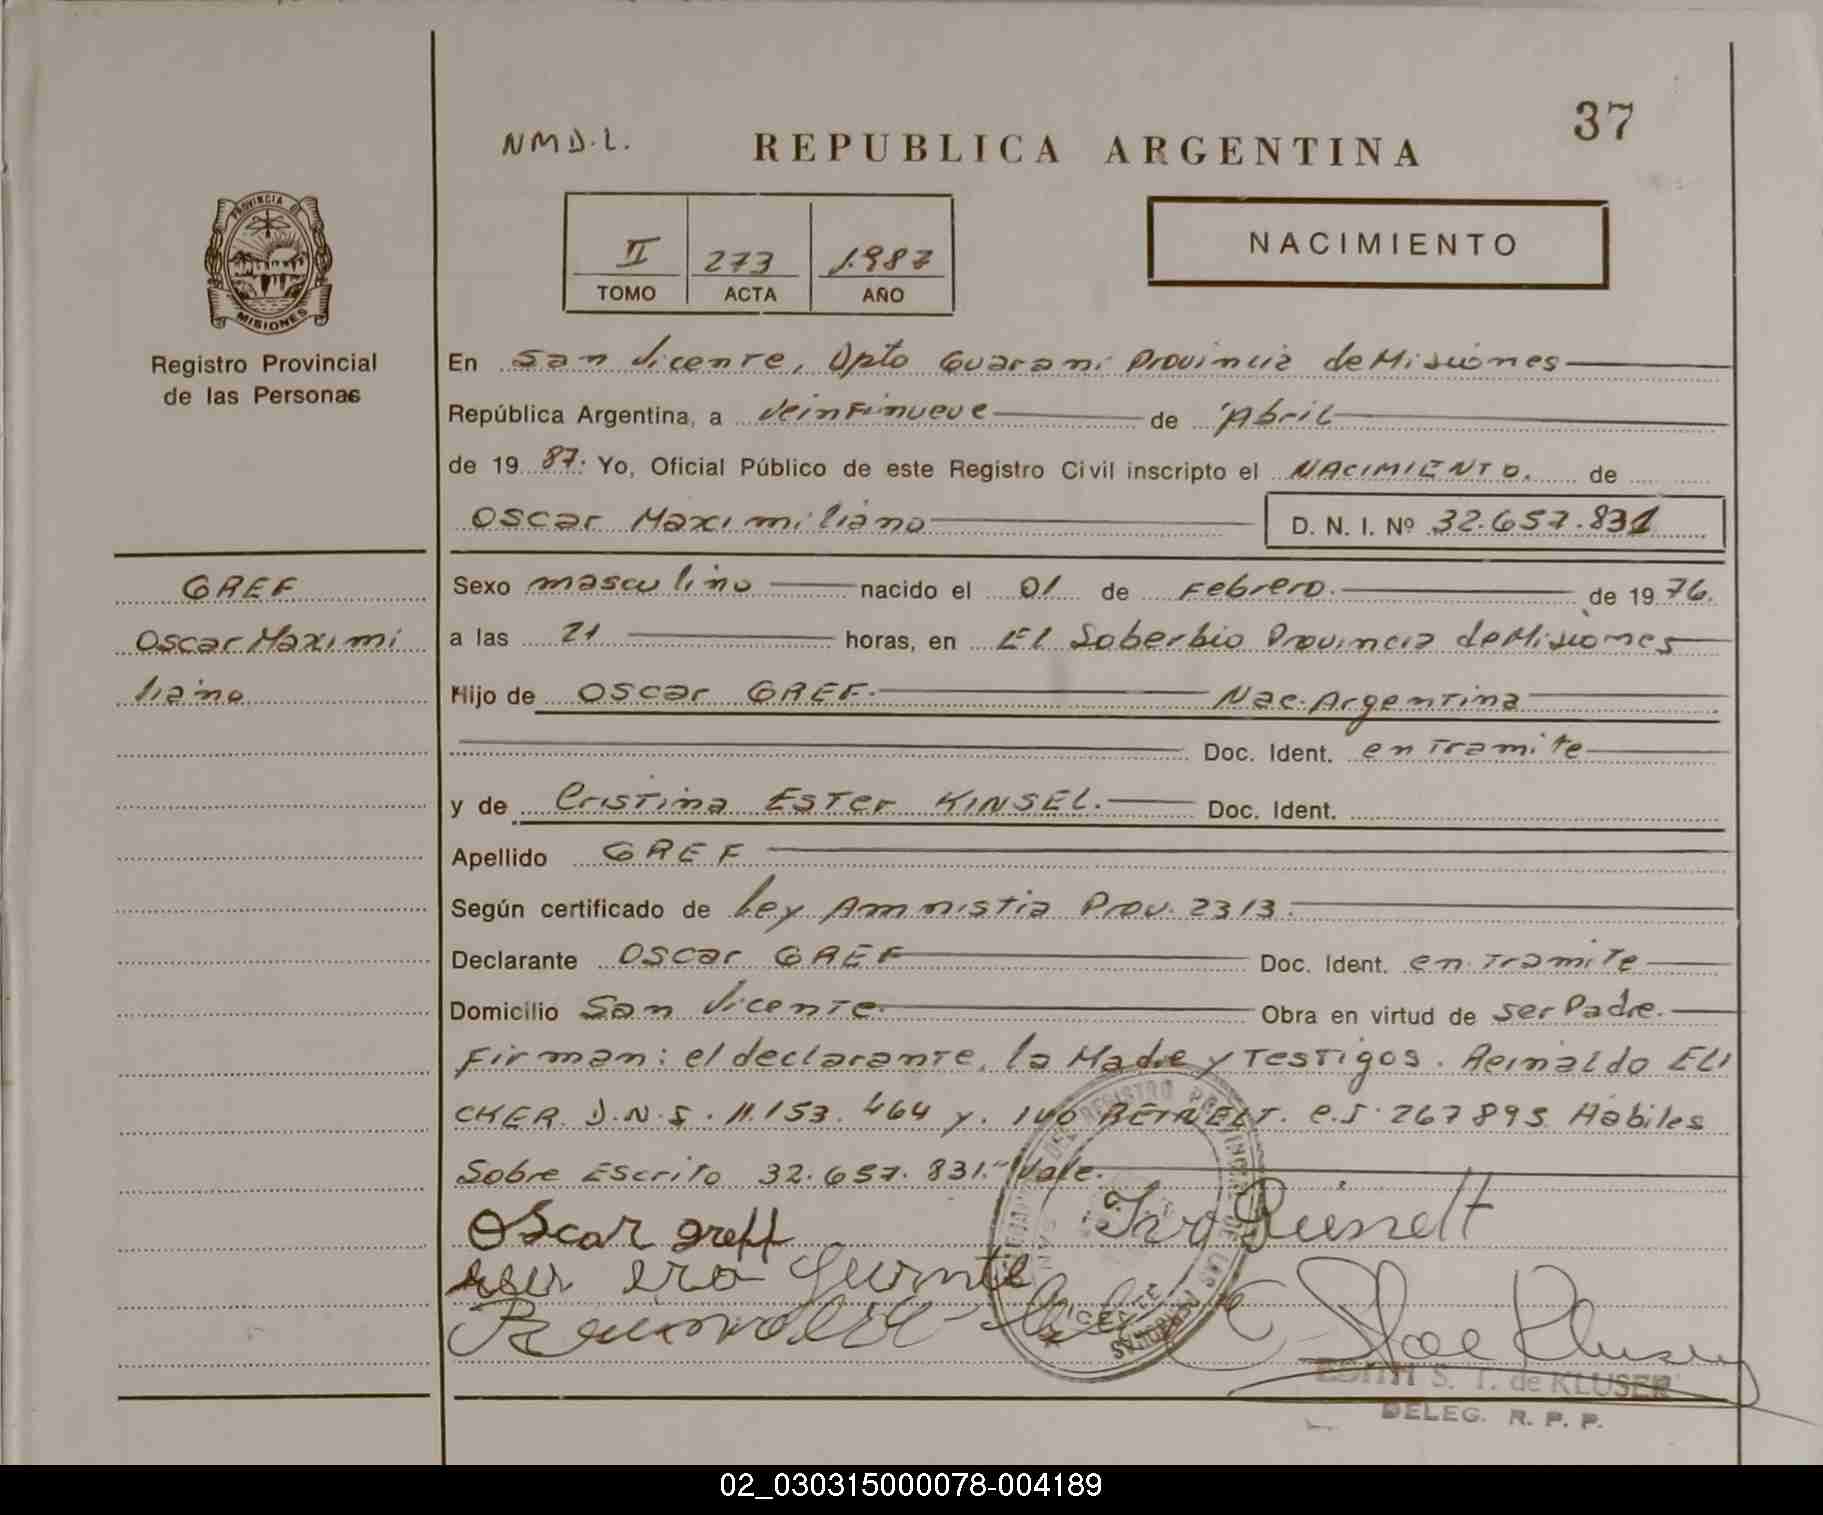 37
NMD.L.
REPUBLICA ARGENTINA
PROVINCIA DE
MISIONES
Registro Provincial
de las Personas
II 273 1.987
TOMO ACTA AÑO
NACIMIENTO
En San Vicente, Dpto Guarani Provincia de Misiones
República Argentina, a Veintinueve de Abril
de 19 87. Yo, Oficial Público de este Registro Civil inscripto el NACIMIENTO. de
Oscar Maximiliano D. N. I. Nº 32.657.831
GREF
Oscar Maximi
liano
Sexo masculino nacido el 01 de Febrero. de 19 76.
a las 21 horas, en El Soberbio Provincia de Misiones
Hijo de Oscar GREF. Nac. Argentina
Doc. Ident. en Tramite
y de Cristina Ester KINSEL. Doc. Ident.
Apellido GREF
Según certificado de Ley Amnistia Prov. 2313.
Declarante Oscar GREF Doc. Ident. en Tramite
Domicilio San Vicente. Obra en virtud de ser Padre.
Firman: el declarante, la Madre y Testigos. Reinaldo ELI
CKER. D.N.I. 11.153.464 y. IVO C.I. 267895 Habiles
Sobre Escrito 32.657.831.- Vale.
Oscar greff
EDITH S. T. de KLUSER
DELEG. R. P. P.
02_030315000078-004189